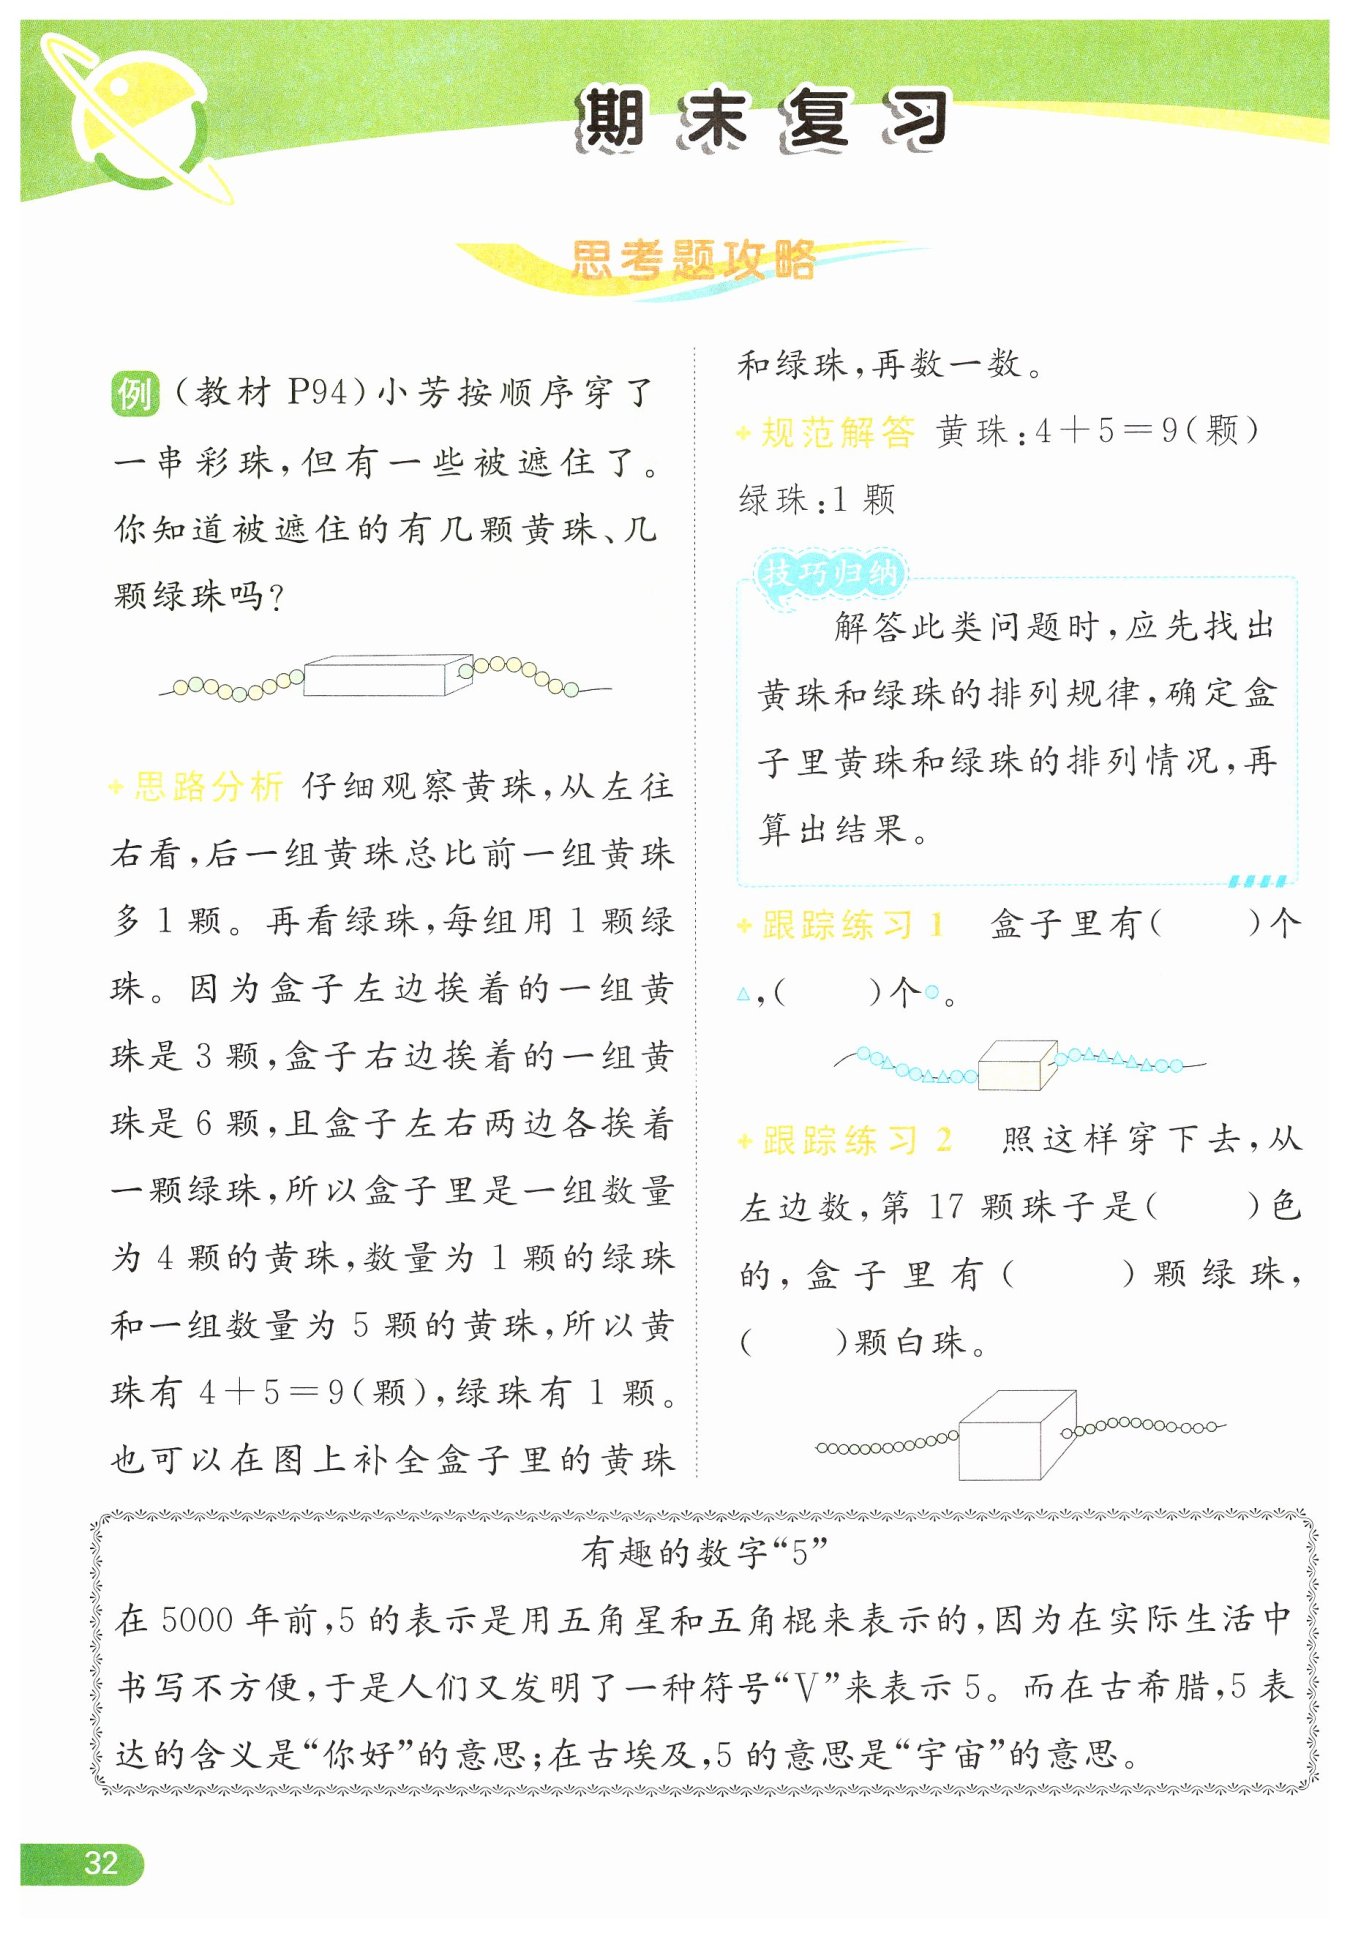 期末复习
思考题攻略
例 (教材 P94)小芳按顺序穿了
一串彩珠,但有一些被遮住了。
你知道被遮住的有几颗黄珠、几
颗绿珠吗?
思路分析 仔细观察黄珠,从左往
右看,后一组黄珠总比前一组黄珠
多 1 颗。再看绿珠,每组用 1 颗绿
珠。因为盒子左边挨着的一组黄
珠是 3 颗,盒子右边挨着的一组黄
珠是 6 颗,且盒子左右两边各挨着
一颗绿珠,所以盒子里是一组数量
为 4 颗的黄珠,数量为 1 颗的绿珠
和一组数量为 5 颗的黄珠,所以黄
珠有 4+5=9(颗),绿珠有 1 颗。
也可以在图上补全盒子里的黄珠
和绿珠,再数一数。
规范解答 黄珠:4+5=9(颗)
绿珠:1 颗
技巧归纳
解答此类问题时,应先找出
黄珠和绿珠的排列规律,确定盒
子里黄珠和绿珠的排列情况,再
算出结果。
跟踪练习 1 盒子里有( )个
△,( )个○。
跟踪练习 2 照这样穿下去,从
左边数,第 17 颗珠子是( )色
的,盒子里有( )颗绿珠,
( )颗白珠。
有趣的数字“5”
在 5000 年前,5 的表示是用五角星和五角棍来表示的,因为在实际生活中
书写不方便,于是人们又发明了一种符号“V”来表示 5。而在古希腊,5 表
达的含义是“你好”的意思;在古埃及,5 的意思是“宇宙”的意思。
32